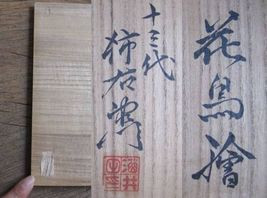 花鳥繪
十三代
柿右衛門